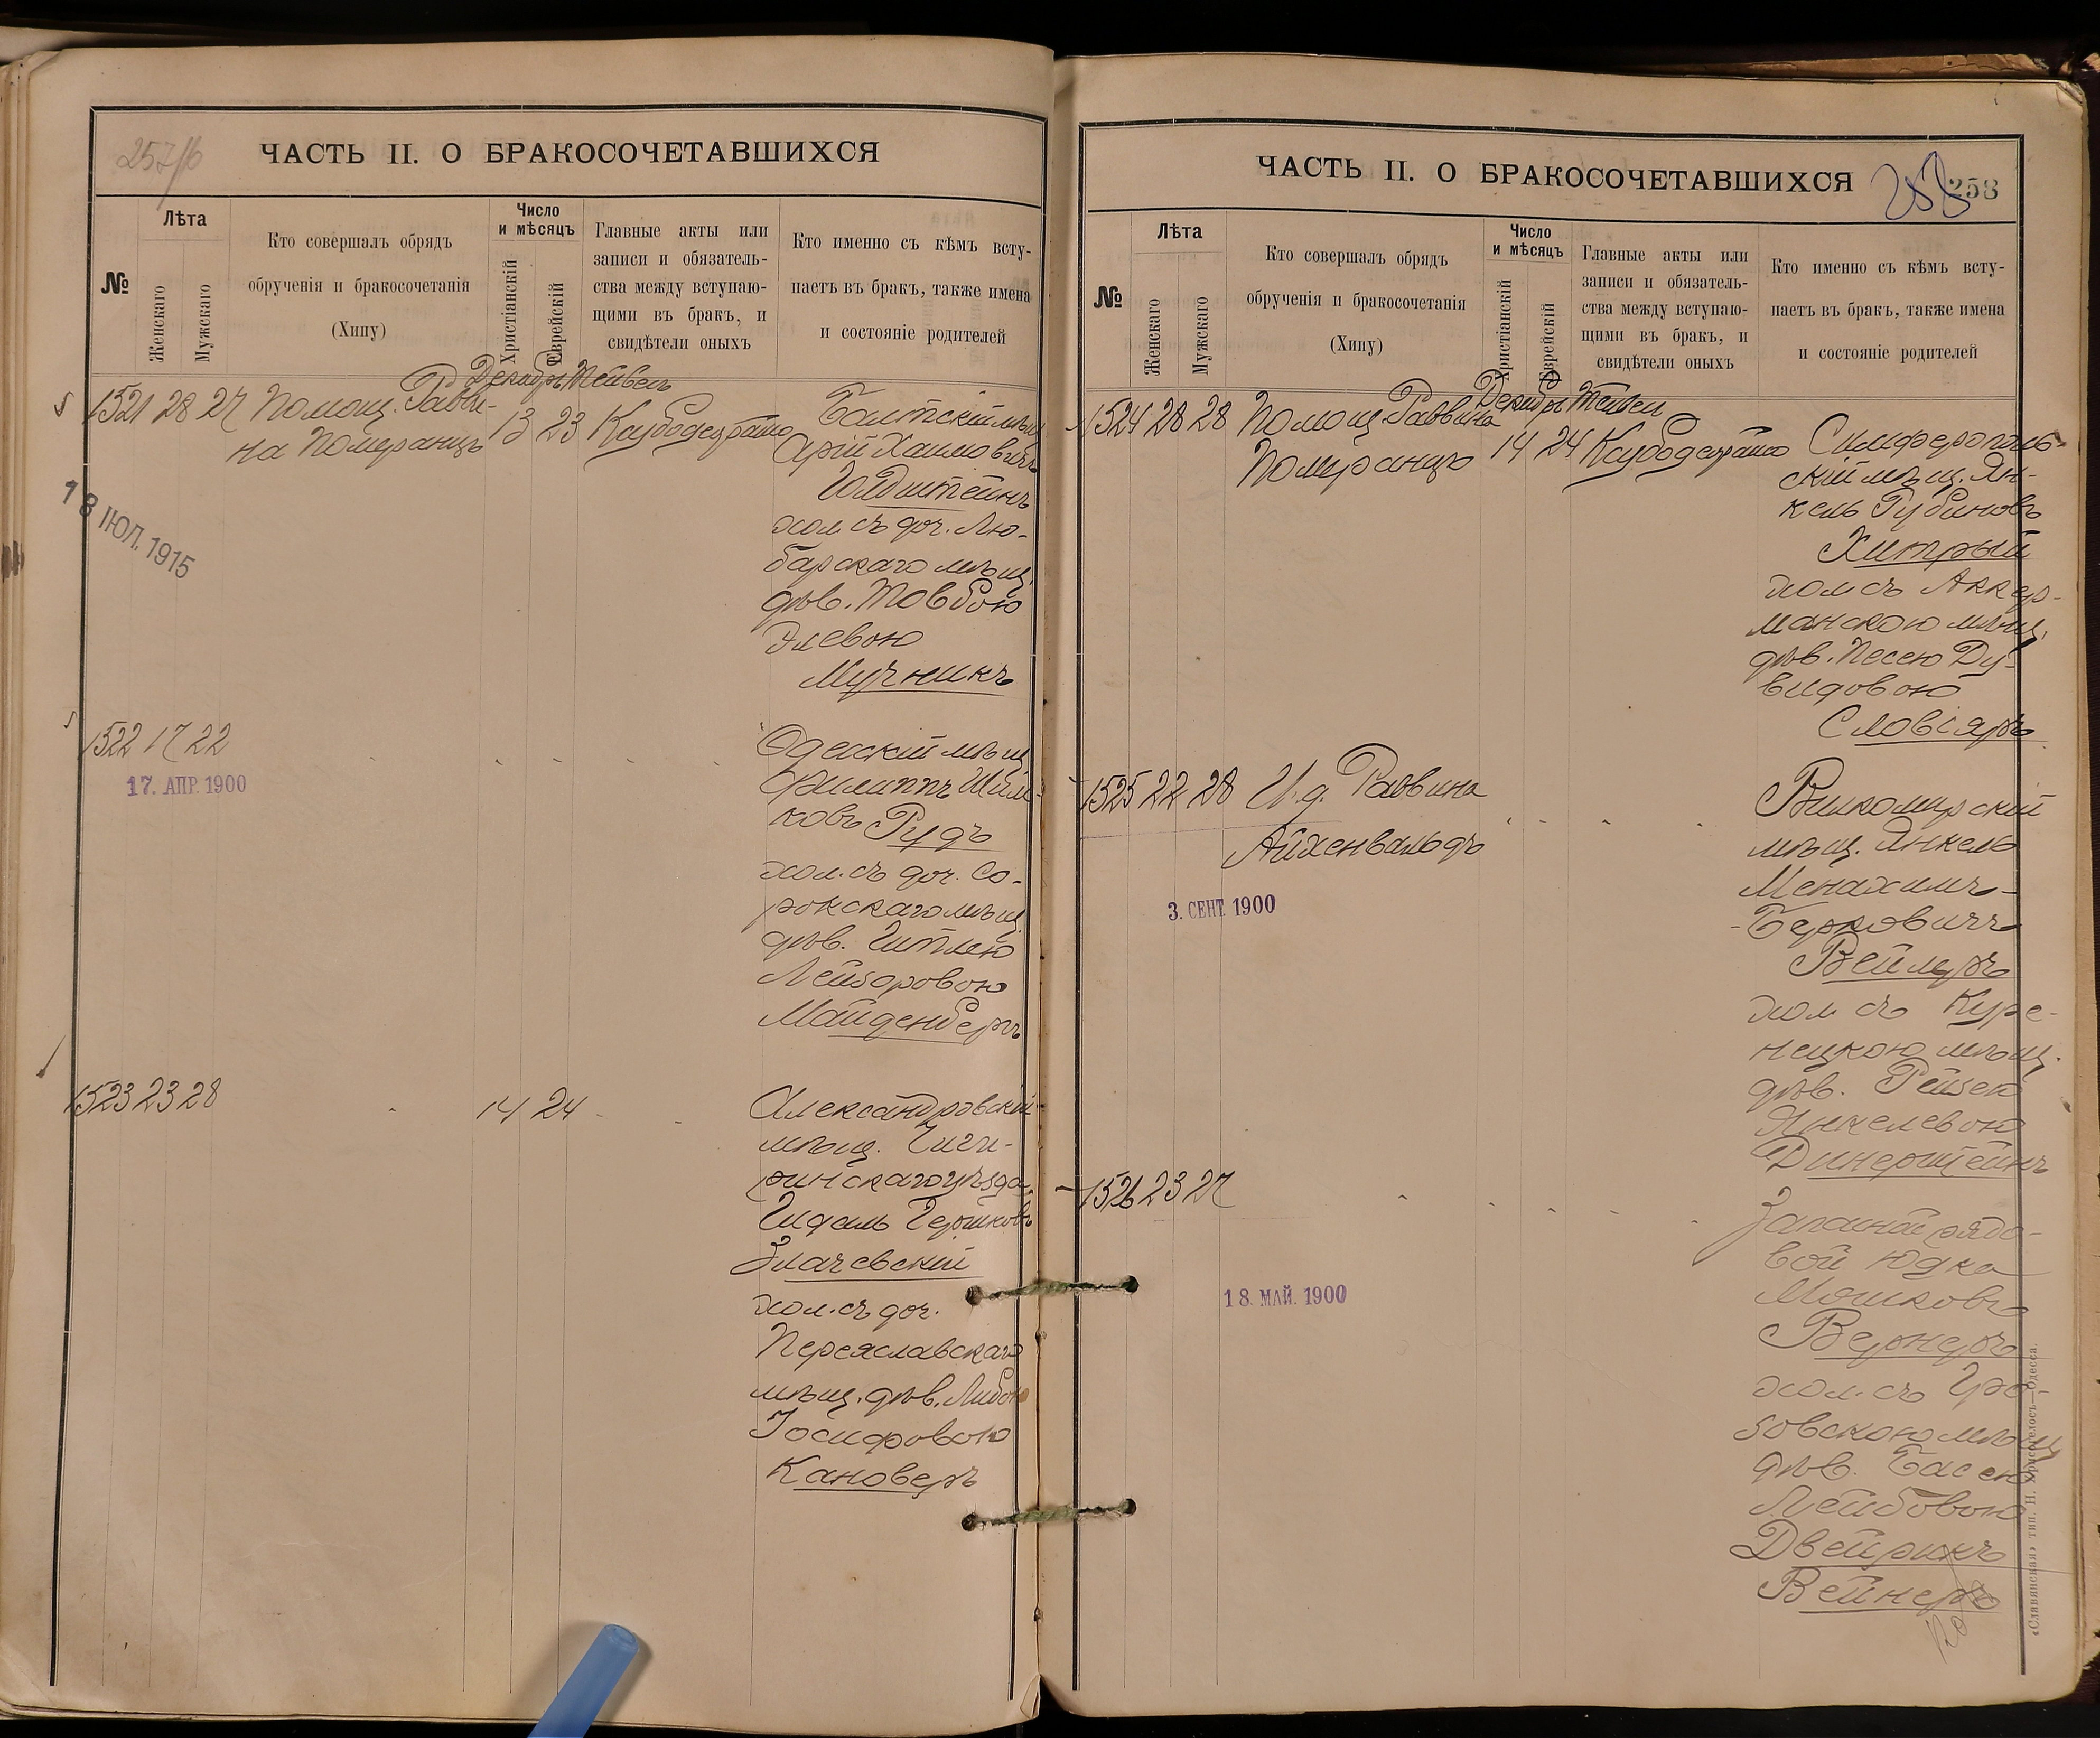 257/б
ЧАСТЬ II. О БРАКОСОЧЕТАВШИХСЯ
№
Лѣта
Женскаго
Мужскаго
Кто совершалъ обрядъ
обрученія и бракосочетанія
(Хипу)
Число
и мѣсяцъ
Христіанскій
Еврейскій
Главные акты или
записи и обязатель-
ства между вступаю-
щими въ бракъ, и
свидѣтели оныхъ
Кто именно съ кѣмъ всту-
паетъ въ бракъ, также имена
и состояніе родителей
Декабрь Тейвесъ
1521 28 27 Помощ. Равви-
на Померанцъ
13 23
Балтскій мѣщ.
Арій Хаимовичъ
Голдштейнъ
хол. съ доч. Лю-
барскаго мѣщ.
дѣв. Товбою
Элевою
Мучникъ
18 ІЮЛ. 1915
1522 17 22
17. АПР. 1900
Одесскій мѣщ.
Филиппъ Шлем-
ковъ Рудъ
хол. съ доч. Со-
рокскаго мѣщ.
дѣв. Гитлею
Лейзеровою
Майденбергъ
1523 23 28
14 24
Александровскій
мѣщ. Чиги-
ринскаго уѣзда
Гидаль Гершковъ
Злачевскій
хол. съ доч.
Переяславскаго
мѣщ. дѣв. Либою
Іосифовою
Кановеръ
258
258
ЧАСТЬ II. О БРАКОСОЧЕТАВШИХСЯ
№
Лѣта
Женскаго
Мужскаго
Кто совершалъ обрядъ
обрученія и бракосочетанія
(Хипу)
Число
и мѣсяцъ
Христіанскій
Еврейскій
Главные акты или
записи и обязатель-
ства между вступаю-
щими въ бракъ, и
свидѣтели оныхъ
Кто именно съ кѣмъ всту-
паетъ въ бракъ, также имена
и состояніе родителей
Декабрь Тейвесъ
1524 28 28 Помощ. Раввина
Померанцъ
14 24
Симферополь-
скій мѣщ. Ян-
кель Рубиновъ
Хитрый
хол. съ Аккер-
манскою мѣщ.
дѣв. Песею Ду-
видовою
Словіяръ
1525 22 28 И. д. Раввина
Айхенвальдъ
3. СЕНТ. 1900
Вилкомирскій
мѣщ. Янкель
Менахимъ-
-Берковичъ
Вейлеръ
хол. съ Куре-
нецкою мѣщ.
дѣв. Рейзею
Янкелевою
Динерштейнъ
1526 23 27
18. МАЙ. 1900
Запасной рядо-
вой Юдка
Мошковъ
Вернеръ
хол. съ Гро-
зовскою мѣщ.
дѣв. Басею
Лейбовою
Двейринъ
Вейнеръ
«Славянская» тип. Н. Хрисогелосъ—Одесса.